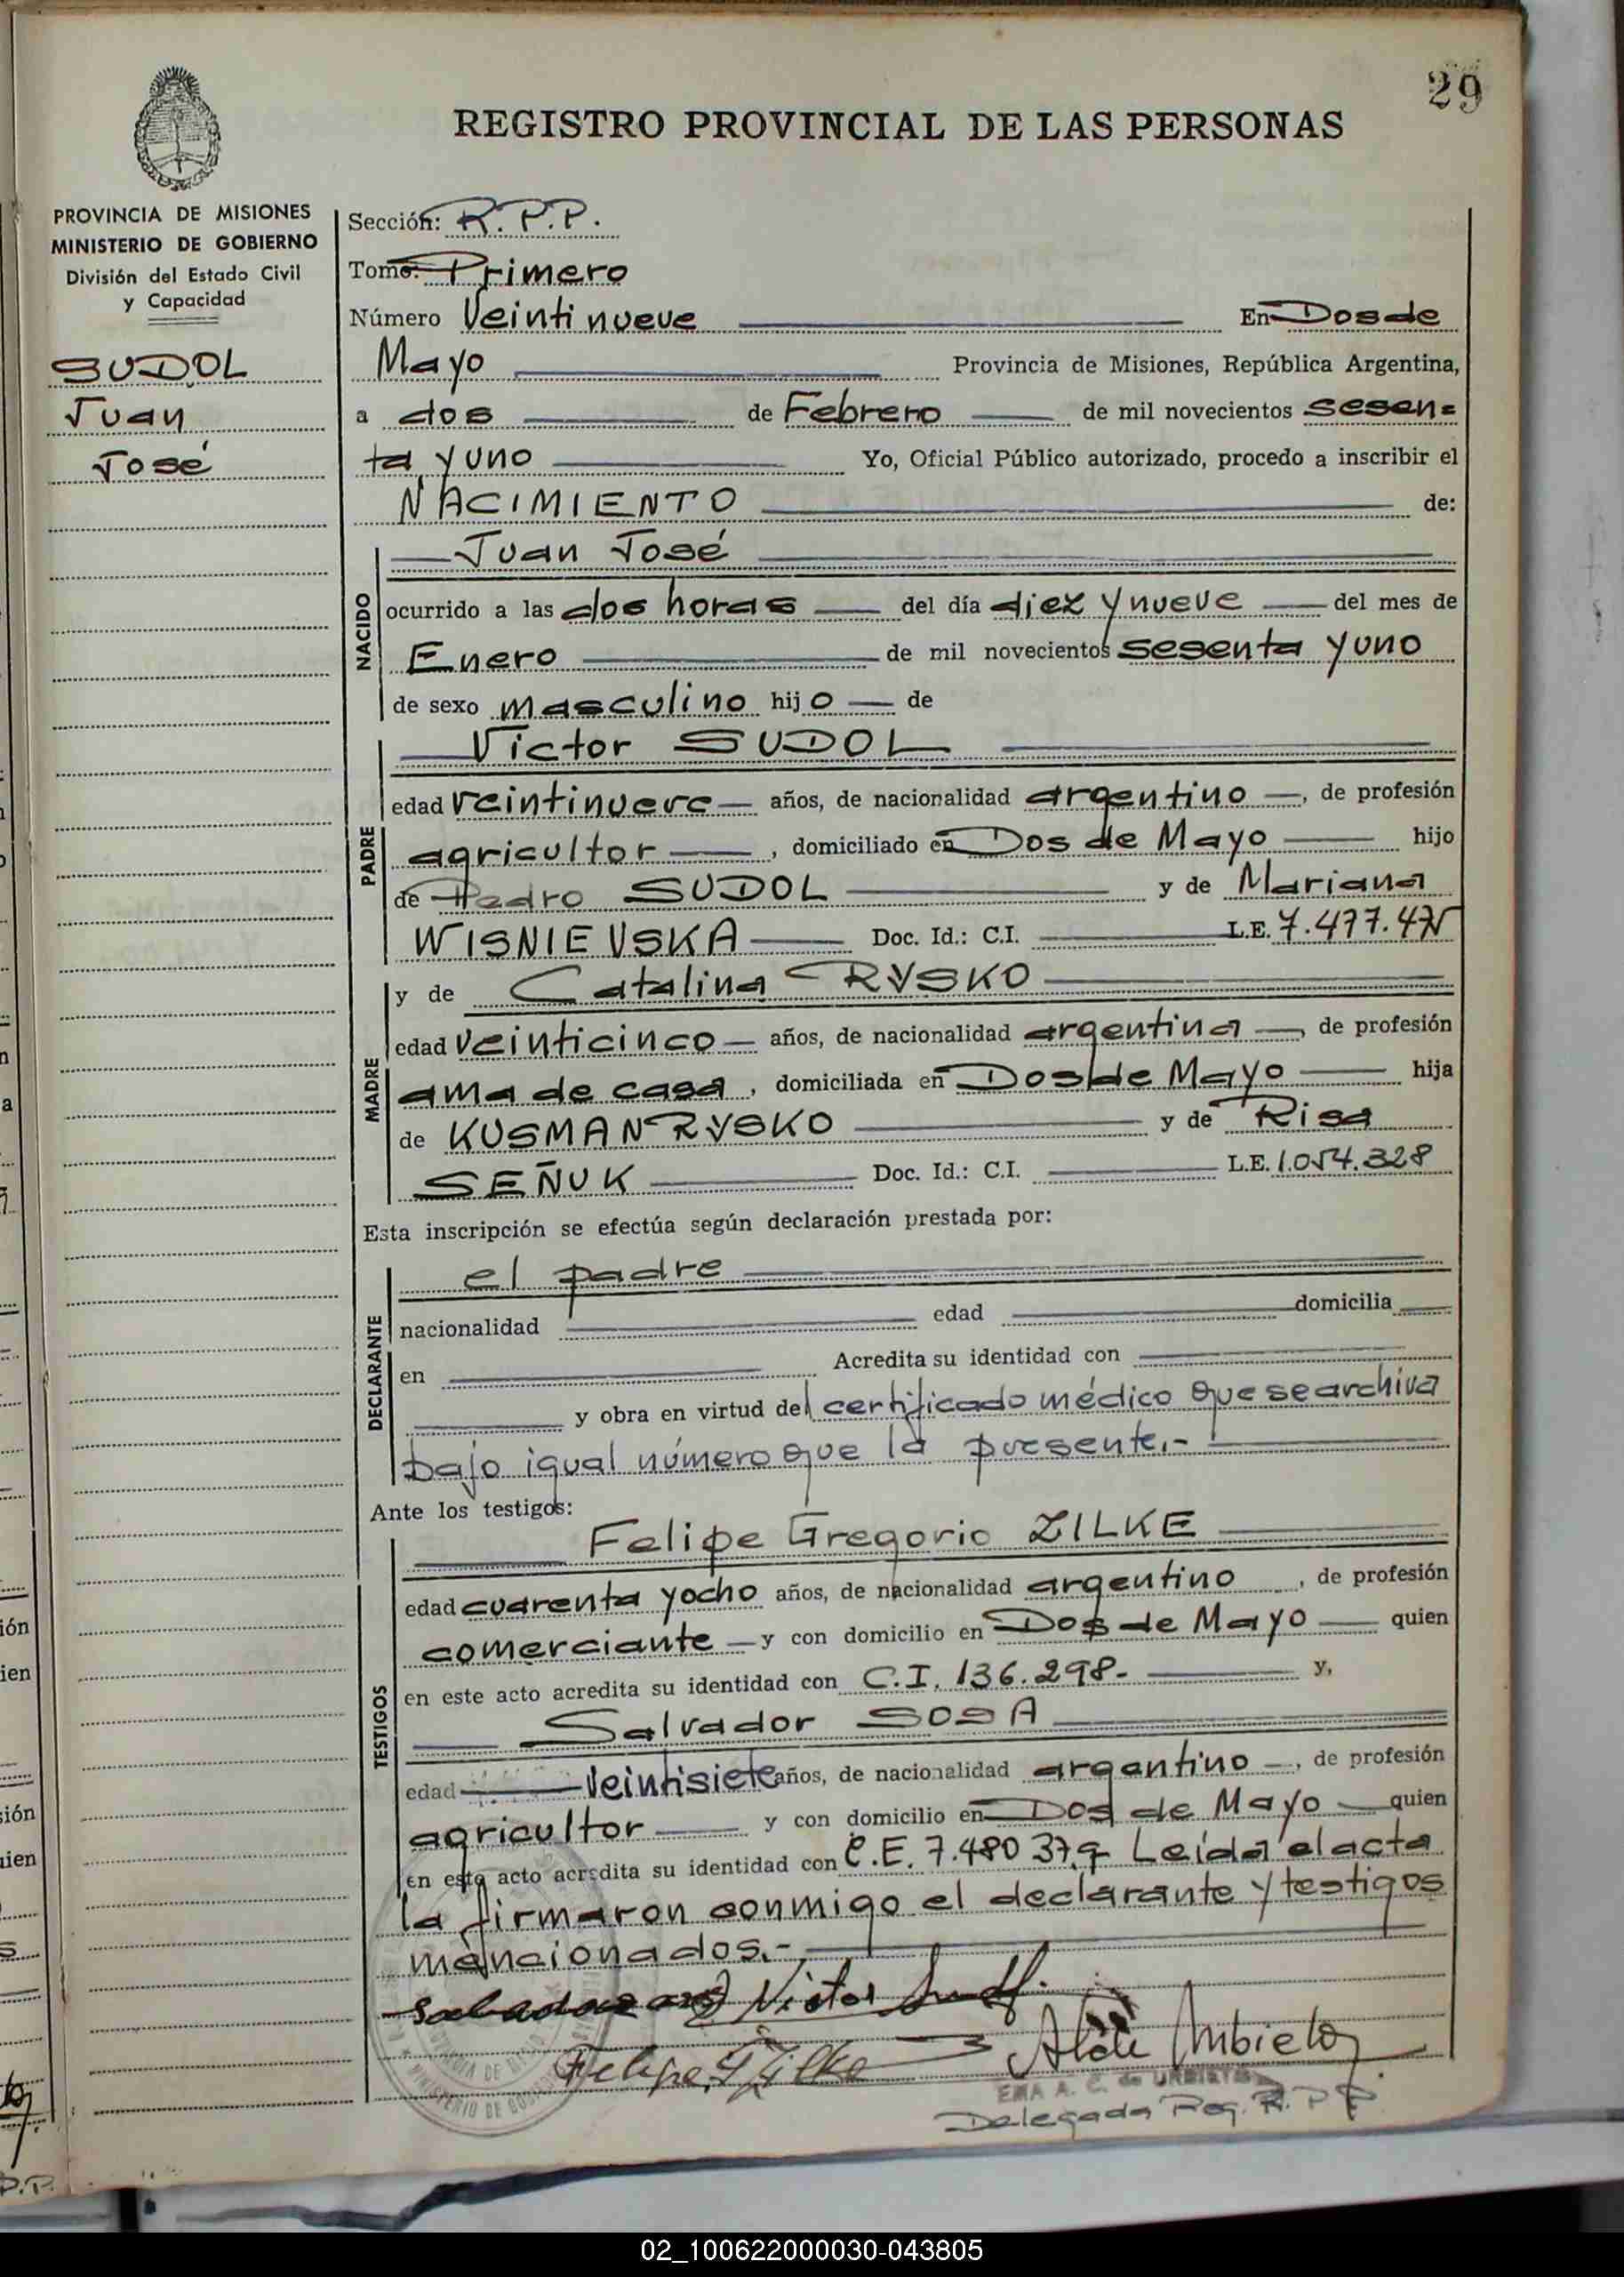 29
REGISTRO PROVINCIAL DE LAS PERSONAS
PROVINCIA DE MISIONES
MINISTERIO DE GOBIERNO
División del Estado Civil
y Capacidad
SUDOL
Juan
José
Sección: R.P.P.
Tomo: Primero
Número Veintinueve En Dos de
Mayo Provincia de Misiones, República Argentina,
a dos de Febrero de mil novecientos sesen=
ta y uno Yo, Oficial Público autorizado, procedo a inscribir el
NACIMIENTO de:
NACIDO
Juan José
ocurrido a las dos horas del día diez y nueve del mes de
Enero de mil novecientos sesenta y uno
de sexo masculino hijo de
PADRE
Victor SUDOL
edad veintinueve años, de nacionalidad argentino, de profesión
agricultor, domiciliado en Dos de Mayo hijo
de Pedro SUDOL y de Mariana
WISNIEVSKA Doc. Id.: C.I. L.E. 7.477.47
MADRE
y de Catalina RYSKO
edad veinticinco años, de nacionalidad argentina, de profesión
ama de casa, domiciliada en Dos de Mayo hija
de KUSMAN RYSKO y de Risa
SEÑUK Doc. Id.: C.I. L.E. 1.054.328
Esta inscripción se efectúa según declaración prestada por:
DECLARANTE
el padre
nacionalidad edad domicilia
en Acredita su identidad con
y obra en virtud del certificado médico que se archiva
bajo igual número que la presente.-
Ante los testigos:
TESTIGOS
Felipe Gregorio ZILKE
edad cuarenta y ocho años, de nacionalidad argentino, de profesión
comerciante y con domicilio en Dos de Mayo quien
en este acto acredita su identidad con C.I. 136.298.- y,
Salvador SOSA
edad Veintisiete años, de nacionalidad argentino, de profesión
agricultor y con domicilio en Dos de Mayo quien
en este acto acredita su identidad con C.E. 7.480 379 Leída el acta
la firmaron conmigo el declarante y testigos
mencionados.-
Victor
Felipe G Zilke
EMA A. C. de URBIETA
Delegada Reg. R. P. P.
02_100622000030-043805